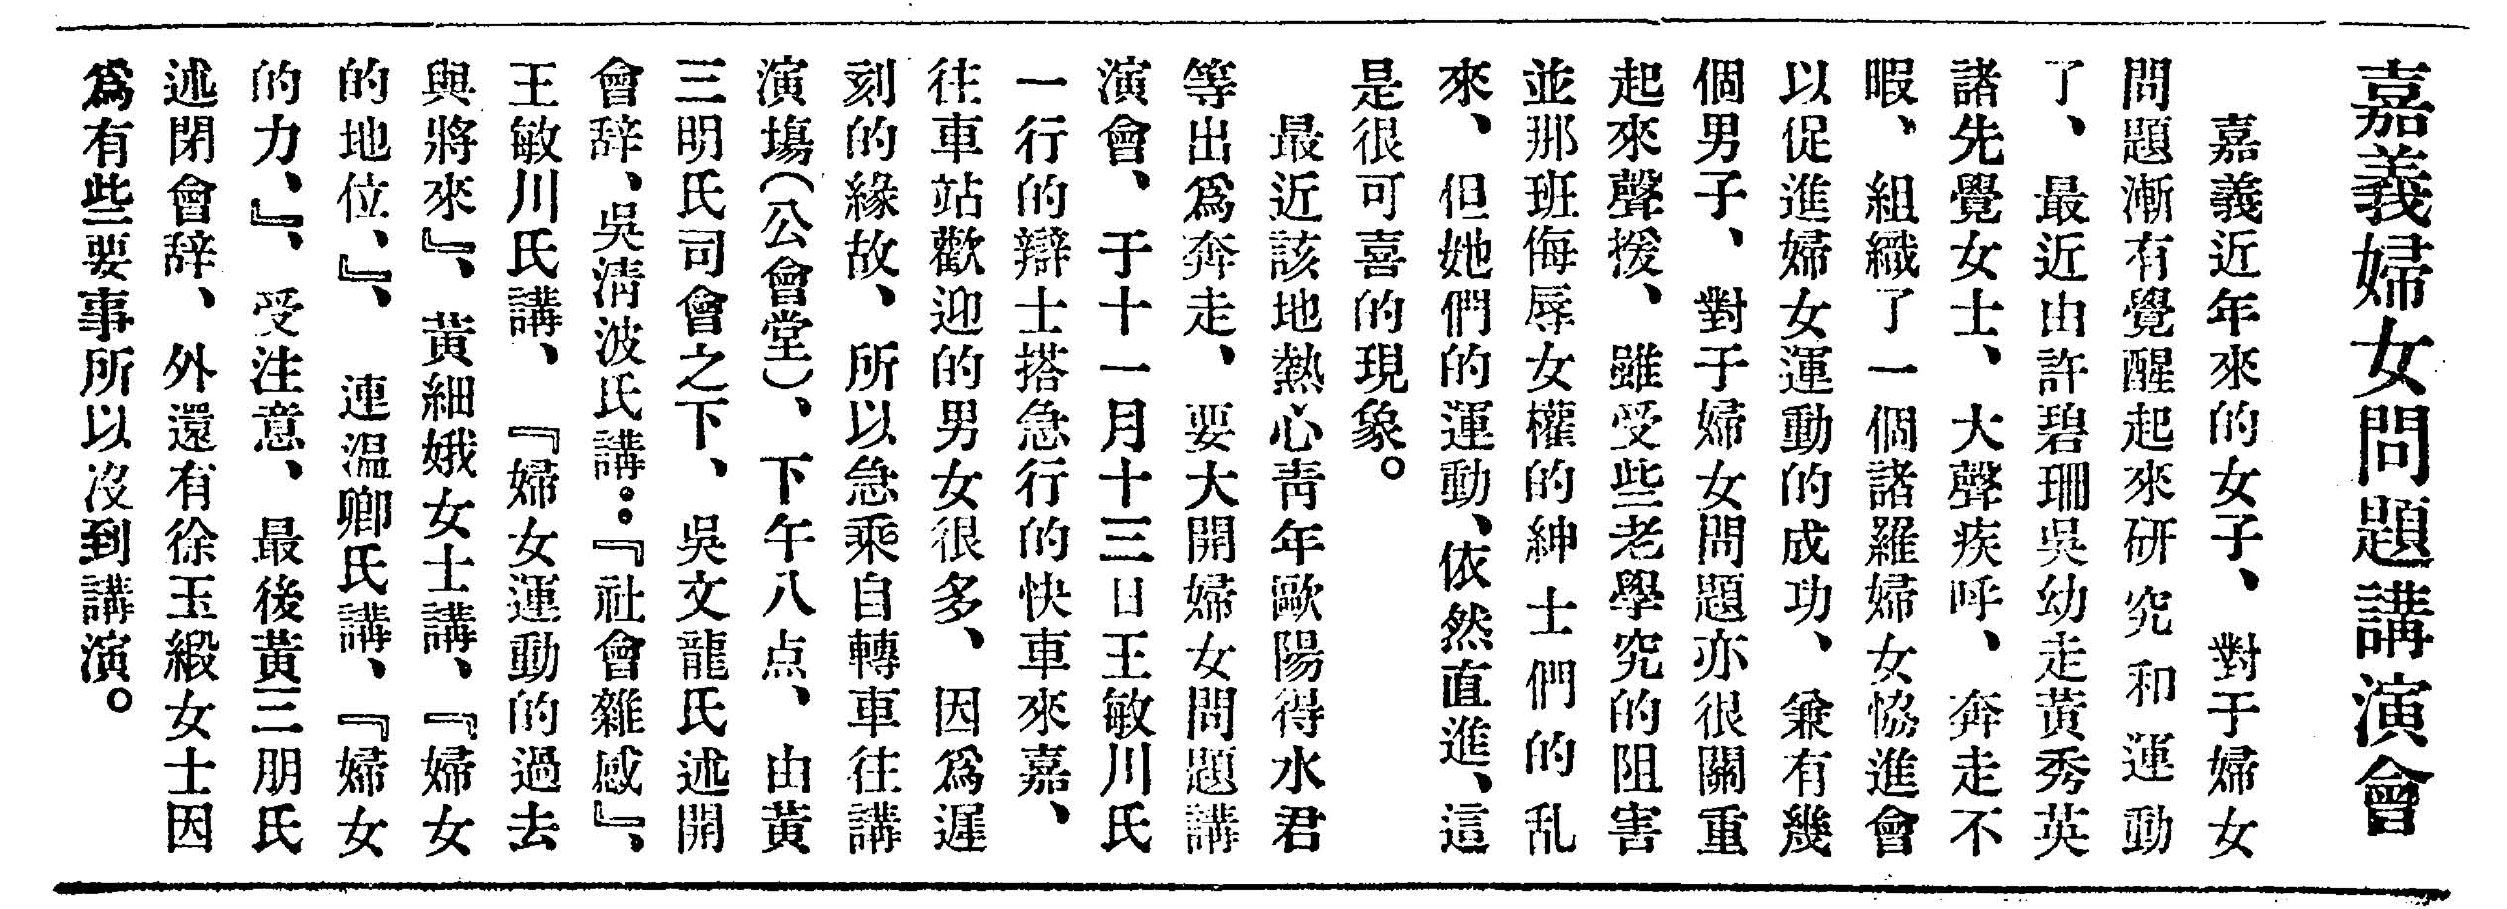 嘉義婦女問題講演會
嘉義近年來的女子、對于婦女
問題漸有覺醒起來研究和運動
了、最近由許碧珊吳幼走黃秀英
諸先覺女士、大聲疾呼、奔走不
暇、組織了一個諸羅婦女協進會
以促進婦女運動的成功、兼有幾
個男子、對于婦女問題亦很關重
起來聲援、雖受些老學究的阻害
並那班侮辱女權的紳士們的乱
來、但她們的運動、依然直進、這
是很可喜的現象。
最近該地熱心靑年歐陽得水君
等出爲奔走、要大開婦女問題講
演會、于十一月十三日王敏川氏
一行的辯士搭急行的快車來嘉、
往車站歡迎的男女很多、因爲遲
刻的緣故、所以急乘自轉車往講
演塲（公會堂）、下午八点、由黃
三明氏司會之下、吳文龍氏述開
會辞、吳淸波氏講：『社會雜感』、
王敏川氏講、『婦女運動的過去
與將來』、黃細娥女士講、『婦女
的地位、』、連温卿氏講、『婦女
的力、』、受注意、最後黃三朋氏
述閉會辞、外還有徐玉緞女士因
爲有些要事所以沒到講演。